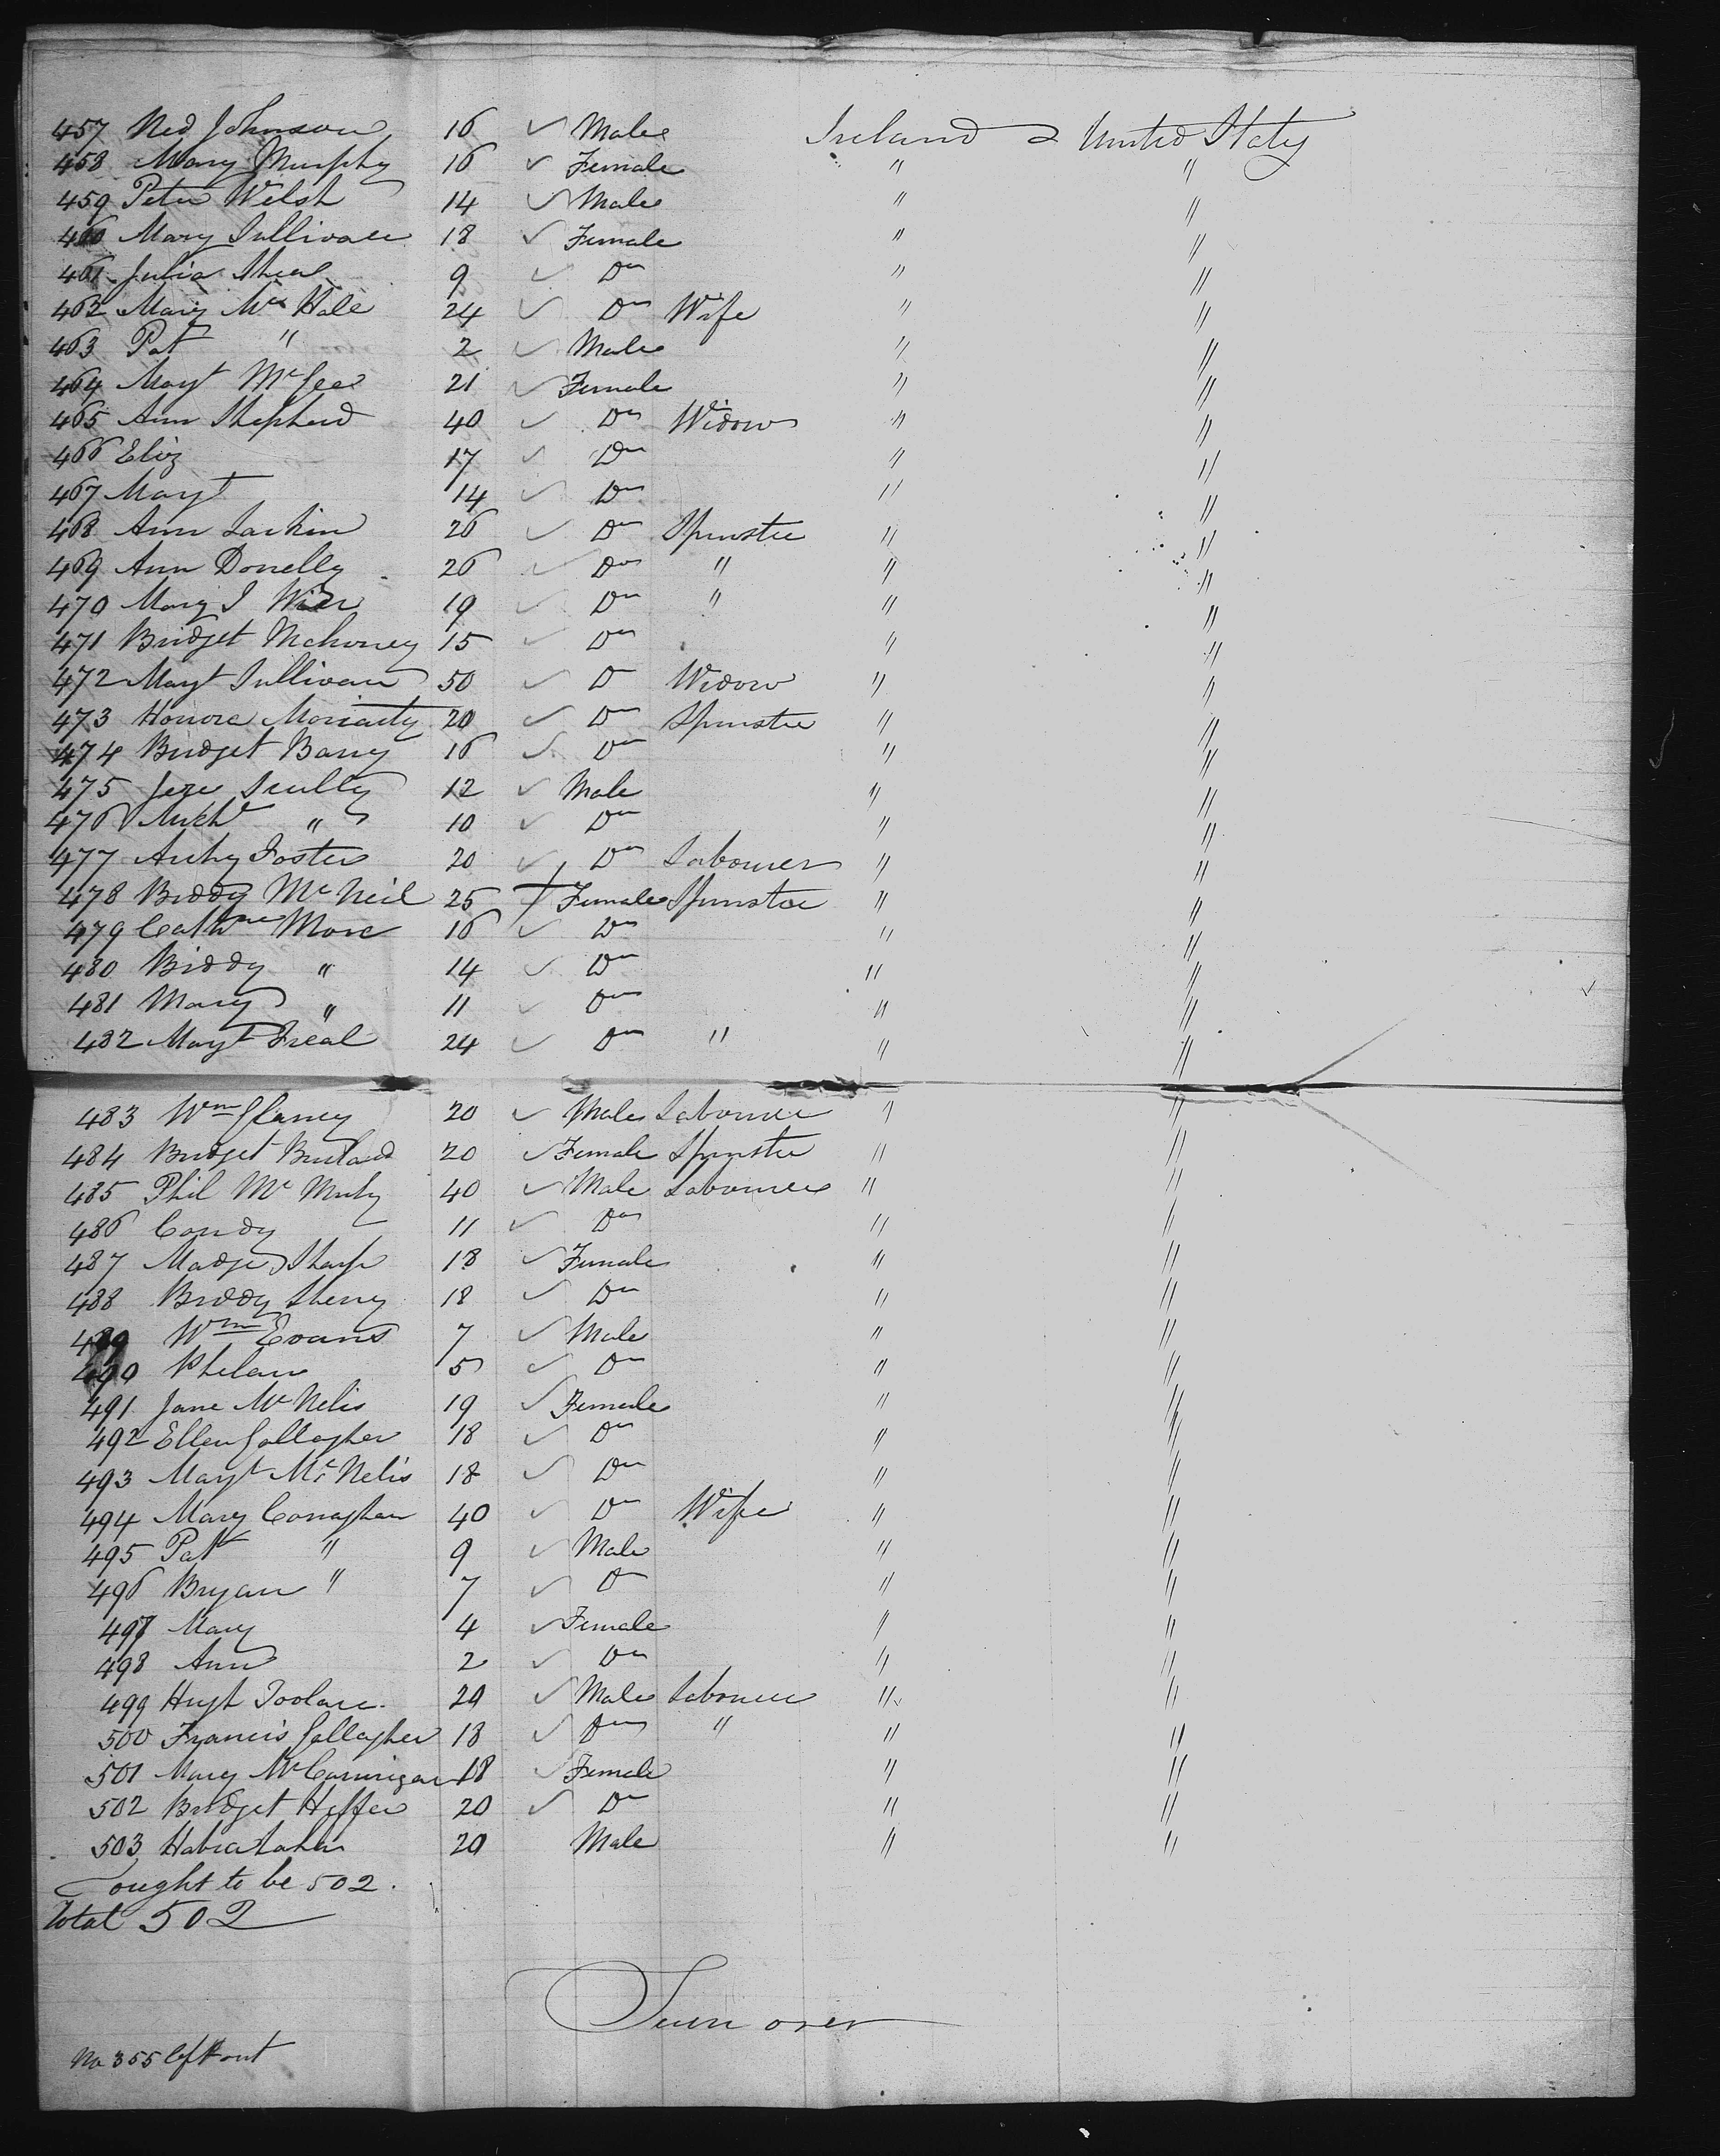 457 Ned Johnson 16 ✓ Male Ireland & United States
458 Mary Murphy 16 ✓ Female " "
459 Peter Welsh 14 ✓ Male " "
460 Mary Sullivan 18 ✓ Female " "
461 Julia Shea 9 ✓ Do " "
462 Mary Mc Hale 24 ✓ Do Wife " "
463 Pat " 2 ✓ Male " "
464 Mayt McGee 21 ✓ Female " "
465 Ann Shepherd 40 ✓ Do Widow " "
466 Eliz 17 ✓ Do " "
467 Mayt 14 ✓ Do " "
468 Ann Larkin 26 ✓ Do Spinster " "
469 Ann Donelly 26 ✓ Do " " "
470 Mary J 19 ✓ Do " " "
471 Bridget Mahoney 15 ✓ Do " "
472 Mayt Sullivan 50 ✓ D Widow " "
473 Honora Moriarty 20 ✓ Do Spinster " "
474 Bridget Barry 16 ✓ Do " "
475 Jere Scully 12 ✓ Male " "
476 Michl " 10 ✓ Do " "
477 Anthy Foster 20 ✓ Do Labourer " "
478 Biddy Mc Neil 25 + Female Spinster " "
479 Cathne More 16 ✓ Do " "
480 Biddy " 14 ✓ Do " "
481 Mary " 11 ✓ Do " "
482 Mayt Freal 24 ✓ Do " " "
483 Wm Clancy 20 ✓ Male Labourer " "
484 Bridget 20 ✓ Female Spinster " "
485 Phil Mc 40 ✓ Male Labourer " "
486 Condy 11 ✓ Do " "
487 Madge Sharp 18 ✓ Female " "
488 Biddy Sherry 18 ✓ Do " "
489 Wm Evans 7 ✓ Male " "
490 Phelan 5 ✓ Do " "
491 Jane Mc Nelis 19 ✓ Female " "
492 Ellen Gallagher 18 ✓ Do " "
493 Mayt Mc Nelis 18 ✓ Do " "
494 Mary Conaghan 40 ✓ Do Wife " "
495 Patk " 9 ✓ Male " "
496 Bryan " 7 ✓ Do " "
497 Mary 4 ✓ Female " "
498 Ann 2 ✓ Do " "
499 Hugh Toolan 20 ✓ Male Labourer " "
500 Francis Gallagher 18 ✓ Do " " "
501 Mary 18 ✓ Female " "
502 Bridget 20 ✓ Do " "
503 20 Male " "
ought to be 502.
Total 502
Turn over
No 355 left out